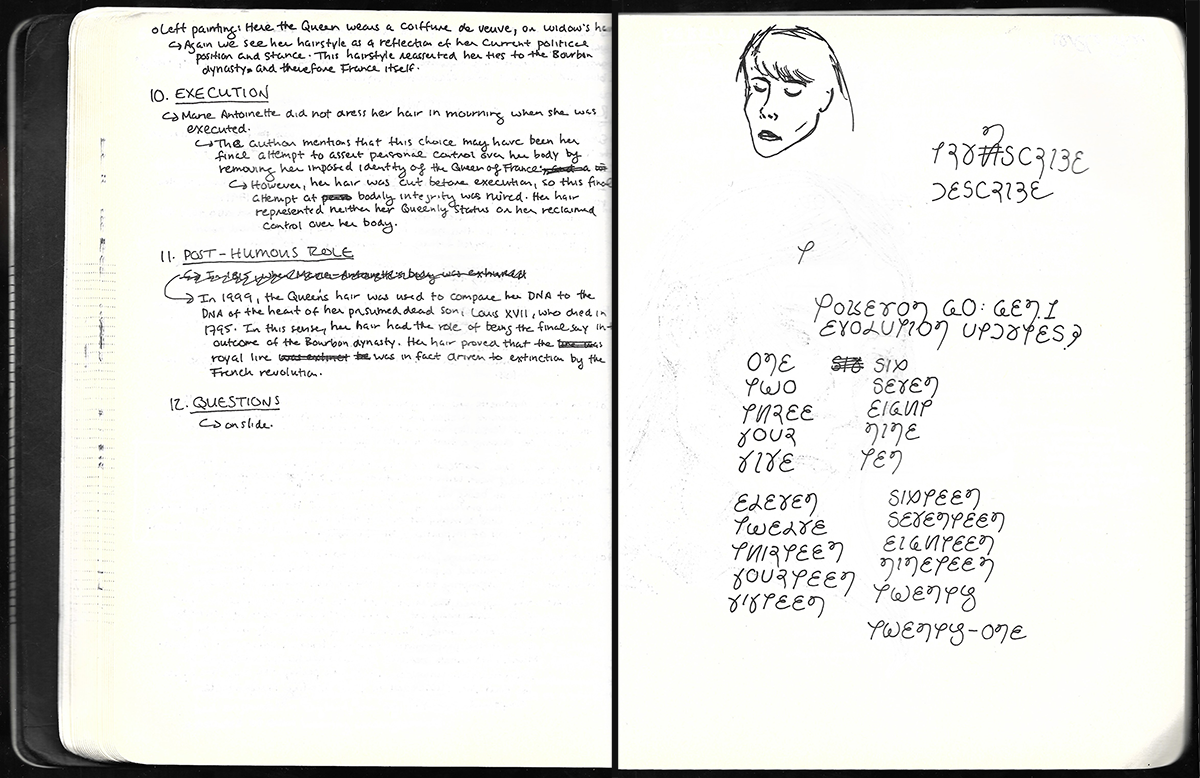 ○ Left painting: Here the Queen wears a coiffure de veuve, or widow's
↳ Again we see her hairstyle as a reflection of her current political
position and stance. This hairstyle reasserted her ties to the Bourbon
dynasty and therefore France itself.
10. EXECUTION
↳ Marie Antoinette did not dress her hair in mourning when she was
executed.
↳ The author mentions that this choice may have been her
final attempt to assert personal control over her body by
removing her imposed identity of the Queen of France.
↳ However, her hair was cut before execution, so this final
attempt at bodily integrity was ruined. Her hair
represented neither her Queenly status or her reclaimed
control over her body.
11. POST-HUMOUS ROLE
↳ In 1999, the Queen's hair was used to compare her DNA to the
DNA of the heart of her presumed dead son, Louis XVII, who died in
1795. In this sense, her hair had the role of being the final say in
outcome of the Bourbon dynasty. Her hair proved that the
royal line was in fact driven to extinction by the
French revolution.
12. QUESTIONS
↳ on slide.
TRANSCRIBE
DESCRIBE
T
POKEMON GO: GEN.1
EVOLUTION UPDATES?
ONE SIX
TWO SEVEN
THREE EIGHT
FOUR NINE
FIVE TEN
ELEVEN SIXTEEN
TWELVE SEVENTEEN
THIRTEEN EIGHTEEN
FOURTEEN NINETEEN
FIFTEEN TWENTY
TWENTY-ONE